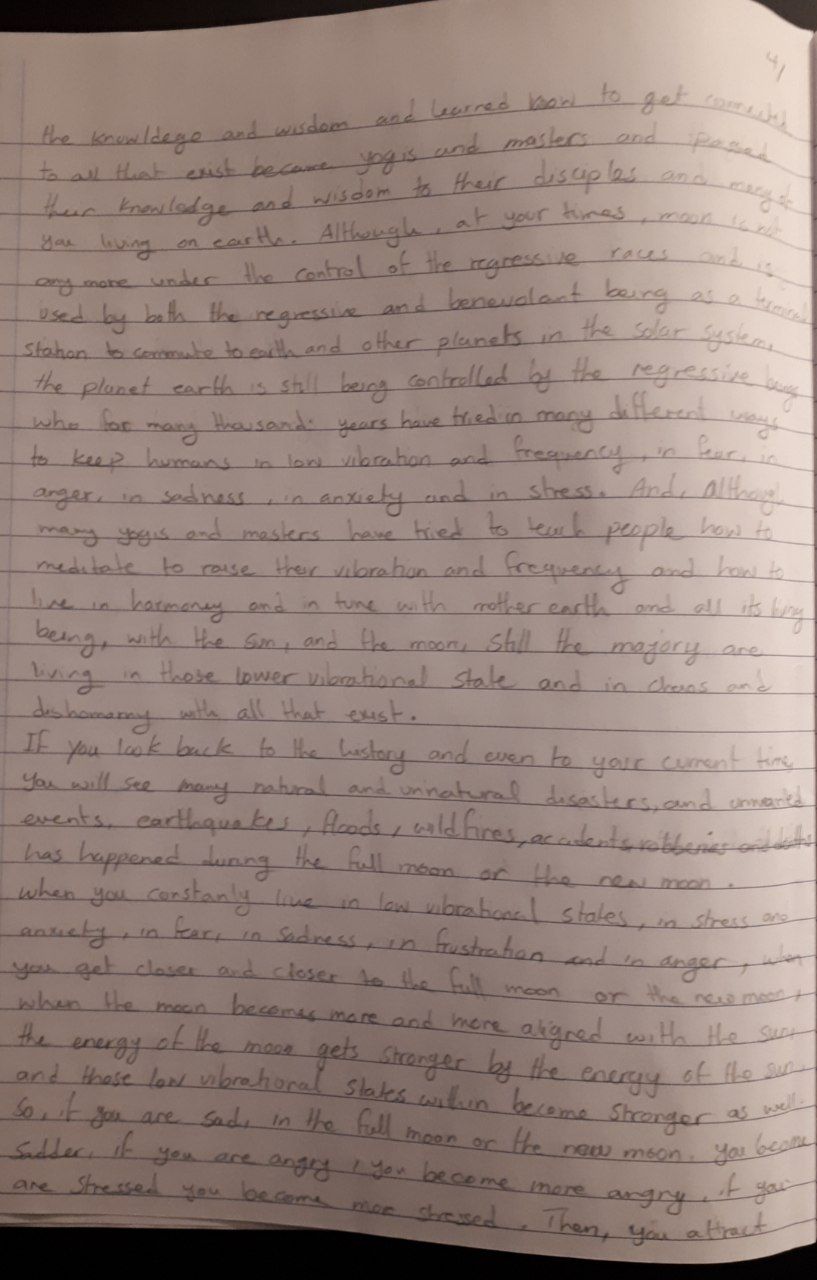 4/
the knowldege and wisdom and learned how to get connected
to all that exist became yogis and masters and passed
their knowledge and wisdom to their disciples and many of
you living on earth. Although, at your times, moon is not
any more under the control of the regressive races and is
used by both the regressive and benevolant being as a terminal
station to commute to earth and other planets in the solar system,
the planet earth is still being controlled by the regressive beings
who for many thousands years have tried in many different ways
to keep humans in low vibration and frequency, in fear, in
anger, in sadness, in anxiety and in stress. And, although
many yogis and masters have tried to teach people how to
meditate to raise their vibration and frequency and how to
live in harmoney and in tune with mother earth and all its living
being, with the sun, and the moon, still the majory are
living in those lower vibrational state and in chaos and
disharmany with all that exist.
If you look back to the history and even to your current time
you will see many natural and unnatural disasters, and unwanted
events, earthquakes, floods, wild fires, accidents robberies
has happened during the full moon or the new moon.
when you constanly live in low vibrational states, in stress and
anxiety, in fear, in sadness, in frustration and in anger, when
you get closer and closer to the full moon or the new moon,
when the moon becomes more and more aligned with the sun,
the energy of the moon gets stronger by the energy of the sun,
and those low vibrational states within become stronger as well.
So, if you are sad, in the full moon or the new moon, you become
sadder, if you are angry, you become more angry, if you
are stressed you become more stressed. Then, you attract